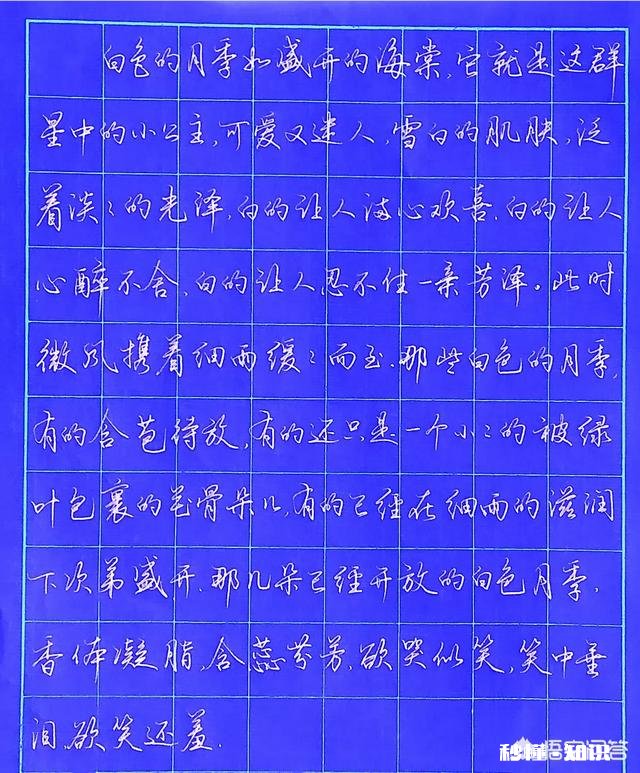 白色的月季如盛开的海棠,它就是这群
星中的小公主,可爱又迷人,雪白的肌肤,泛
着淡々的光泽,白的让人满心欢喜,白的让人
心醉不舍,白的让人忍不住一亲芳泽。此时,
微风携着细雨缓々而至.那些白色的月季,
有的含苞待放,有的还只是一个小々的被绿
叶包裹的花骨朵儿,有的已经在细雨的滋润
下次第盛开.那几朵已经开放的白色月季,
香体凝脂,含蕊芬芳,欲哭似笑,笑中垂
泪,欲笑还羞.
悟空问答
秒懂知识